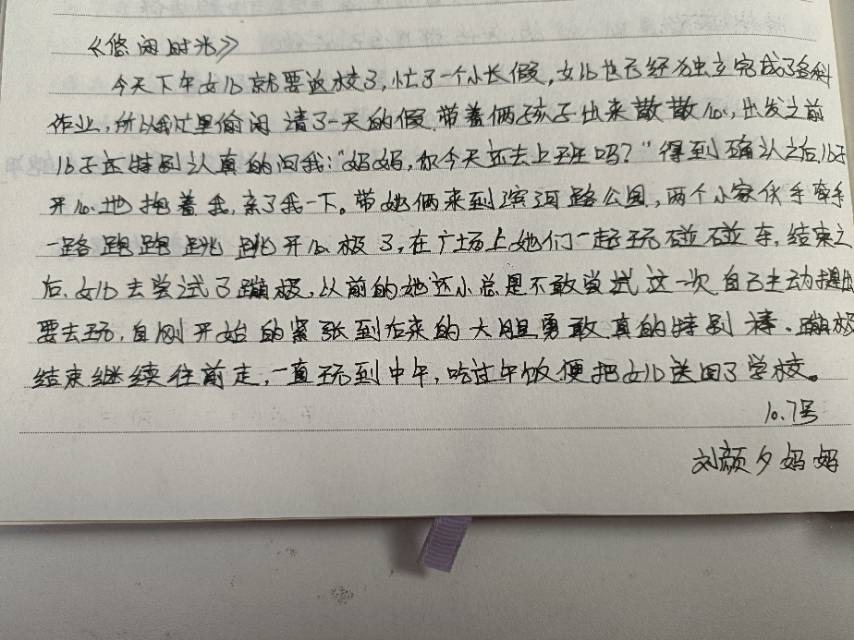 《悠闲时光》
今天下午女儿就要返校了,忙了一个小长假,女儿也已经独立完成了各科
作业,所以我忙里偷闲 请了一天的假,带着俩孩子出来散散心,出发之前
儿子还特别认真的问我:"妈妈,你今天还去上班吗?"得到确认之后,儿子
开心地抱着我,亲了我一下。带她俩来到滨河路公园,两个小家伙手牵手
一路跑跑跳跳开心极了,在广场上她们一起玩碰碰车,结束之
后,女儿去尝试了蹦极,以前的她还小总是不敢尝试这一次自己主动提出
要去玩,自刚开始的紧张到后来的大胆勇敢真的特别棒、蹦极
结束继续往前走,一直玩到中午,吃过午饭便把女儿送回了学校。
10.7号
刘颜夕妈妈